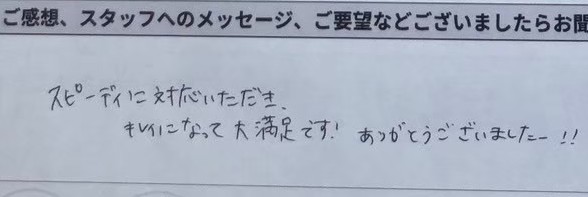 ご感想、スタッフへのメッセージ、ご要望などございましたらお聞
スピーディに対応いただき、
キレイになって大満足です! ありがとうございましたー!!